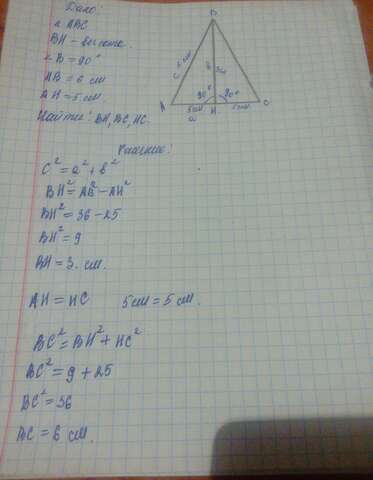 Дано:
△ ABC
BH - высота.
∠B = 90°
AB = 6 см
AH = 5 см.
Найти: BH, BC, HC.
B
6 см
c
в
3см
90°
90°
A
5см
H
5см
C
a
Решение:
C² = a² + b²
BH² = AB² - AH²
BH² = 36 - 25
BH² = 9
BH = 3. см.
AH = HC 5см = 5см.
BC² = BH² + HC²
BC² = 9 + 25
BC² = 36
BC = 6 см.